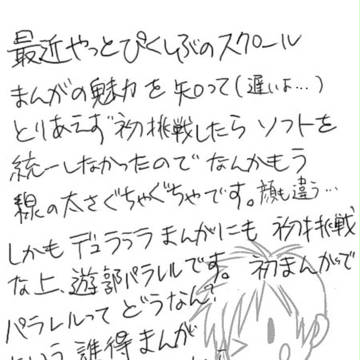 最近やっとぴくしぶのスクロール
まんがの魅力を知って(遅いよ…)
とりあえず初挑戦したらソフトを
統一しなかったのでなんかもう
線の太さぐちゃぐちゃです。顔も違う…
しかもデュラララまんがにも初挑戦
な上、遊部パラレルです。初まんがで
パラレルってどうなん?
という誰得まんが